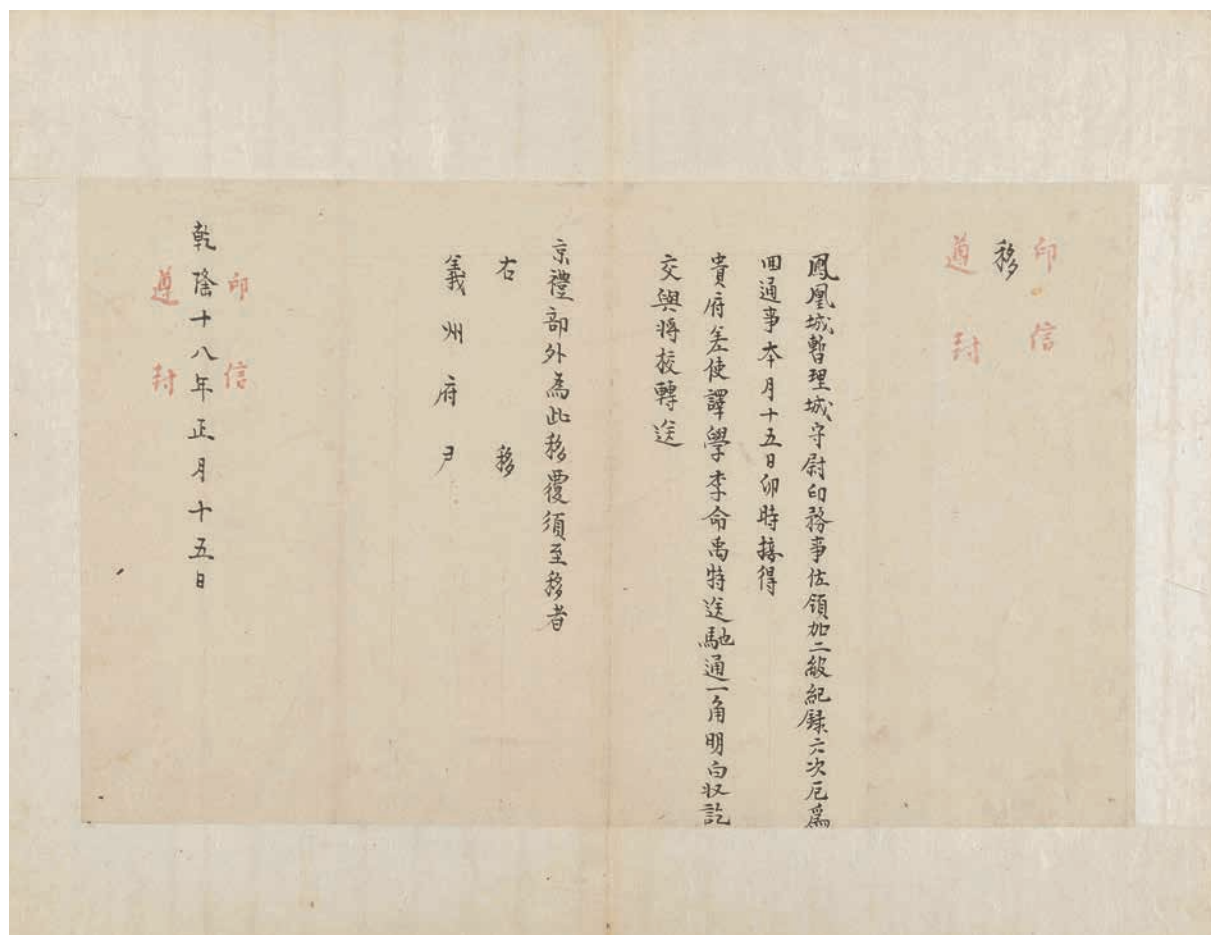 印信
移
遵封
鳳凰城暫理城守尉印務事佐領加二級紀録六次厄為
囬通事本月十五日卯時接得
貴府差使譯學李命禹特送馳通一角明白收訖
交與將校轉送
京禮部外為此移覆須至移者
右移
義州府尹
印信
乾隆十八年正月十五日
遵封